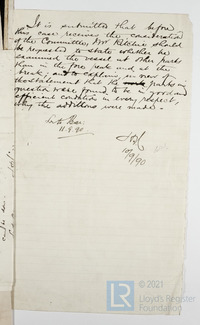 It is submitted that before
this case receives the consideration
of the Committee, Mr Ritchie should
be requested to state whether he
examined the vessel at other parts
than in the fore peak and at the
break, and to explain, in view of
the statement that the parts in
question were found to be in good and
efficient condition in every respect,
why the additions were made.
11.9.90
10/9/90
© 2021
Lloyd's Register
Foundation